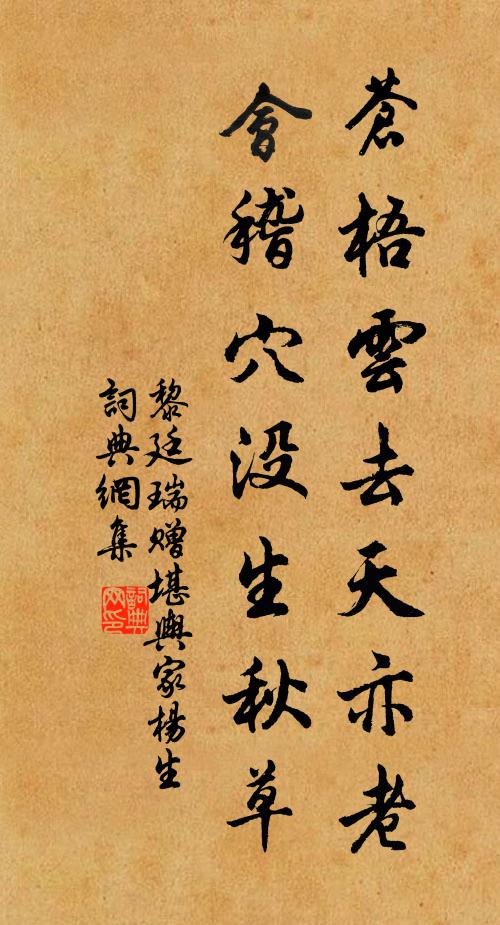 蒼梧雲去天亦老
會稽穴没生秋草
黎廷瑞贈堪輿家楊生
詞典網集
詞典
网印